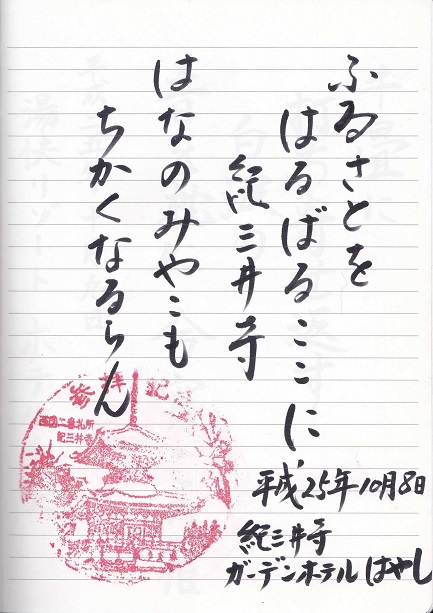 ふるさとを
はるばるここに
紀三井寺
はなのみやこも
ちかくなるらん
参拝記念
西国二番札所
紀三井寺
平成25年10月8日
紀三井寺
ガーデンホテルはやし